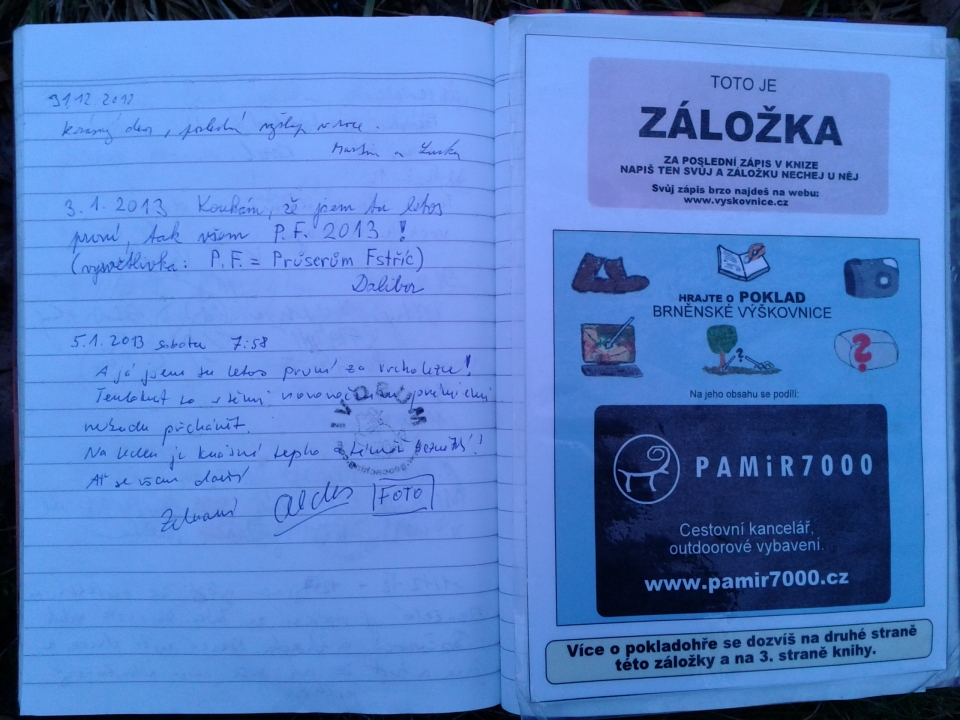 31.12.2012
Krásný den, poslední výstup v roce.
Martin a Lucka
3.1.2013 Koukám, že jsem tu letos
první, tak všem P.F. 2013!
(vysvětlivka: P.F. = Průserům Fstříc)
Dalibor
5.1.2013 sobota 7:58
A já jsem tu letos první za
Tentokrát se s těmi
nebudu píchánit.
Na leden je krásně teplo a téměř bezvětří!
Ať se všem daří
Zdraví Aldes FOTO
TOTO JE
ZÁLOŽKA
ZA POSLEDNÍ ZÁPIS V KNIZE
NAPIŠ TEN SVŮJ A ZÁLOŽKU NECHEJ U NĚJ
Svůj zápis brzo najdeš na webu:
www.vyskovnice.cz
HRAJTE O POKLAD
BRNĚNSKÉ VÝŠKOVNICE
?
?
Na jeho obsahu se podílí:
PAMiR7000
Cestovní kancelář,
outdoorové vybavení.
www.pamir7000.cz
Více o pokladohře se dozvíš na druhé straně
této záložky a na 3. straně knihy.